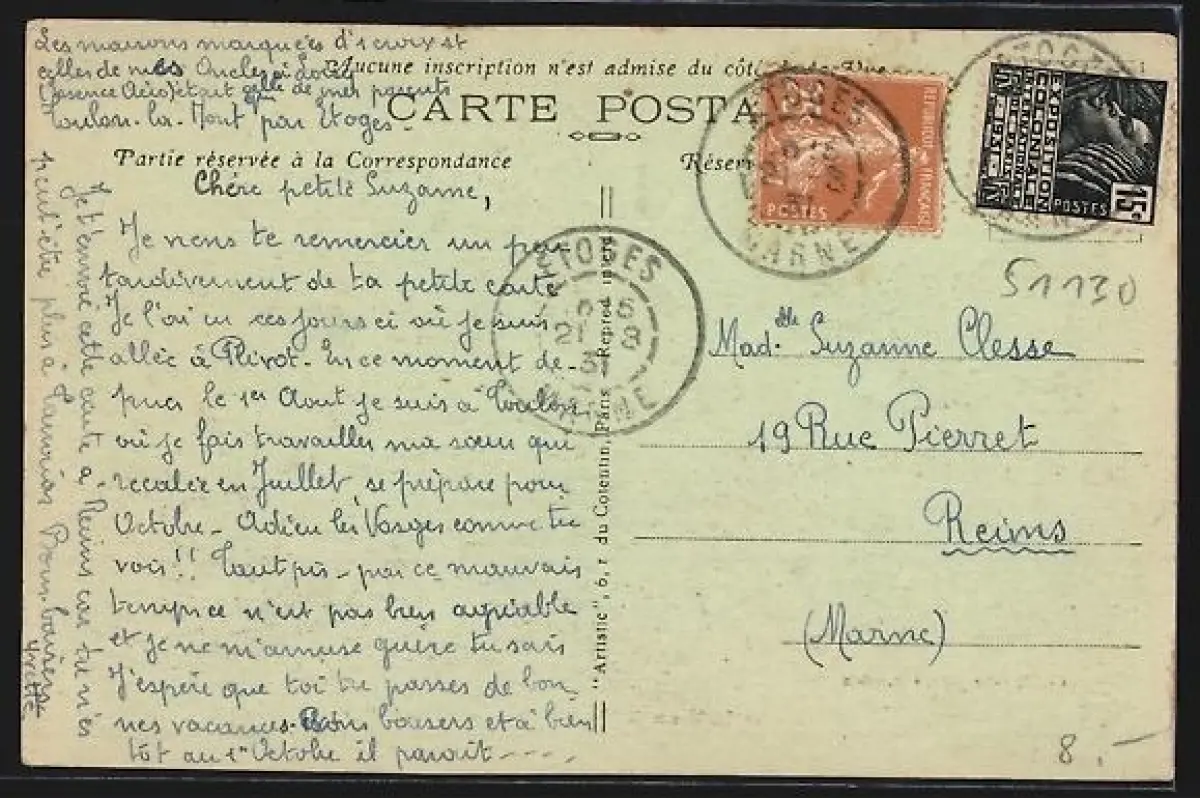 Les maisons marquées d'1 croix st
celles de mes Oncles
Aucune inscription n'est admise du côté de la Vue
(essence Aéro) était celle de mes parents
Toulon-la-Mont par Etoges-
CARTE POSTA
Partie réservée à la Correspondance
Chère petite Suzanne,
Je viens te remercier un peu
tardivement de ta petite carte
Je l'ai eu ces jours ci où je suis
allée à Plivot. En ce moment de-
puis le 1er Aout je suis à Toulon
où je fais travailler ma sœur qui
recalée en Juillet, se prépare pour
Octobre - Adieu les Vosges comme tu
vois!! Tant pis - par ce mauvais
temps ce n'est pas bien agréable
et je ne m'amuse guère tu sais
J'espère que toi tu passes de bon
nes vacances. Bons baisers et à bien
tôt au 1er Octobre il parait - - - -
Je t'envoie cette carte à Reims car tu n'es
peut être plus à Bons baisers
Yvette
Réser
ETOGES
MARNE
REPUBLIQUE FRANÇAISE
POSTES
EXPOSITION
COLONIALE
INTERNATIONALE
DE PARIS
1931
POSTES
15c
ETOGES
21 8
31
MARNE
51130
Madelle Suzanne Clesse
19 Rue Pierret
Reims
(Marne)
"Artistic", 6, r. du Cotentin, Paris Reprod. interd.
8.-